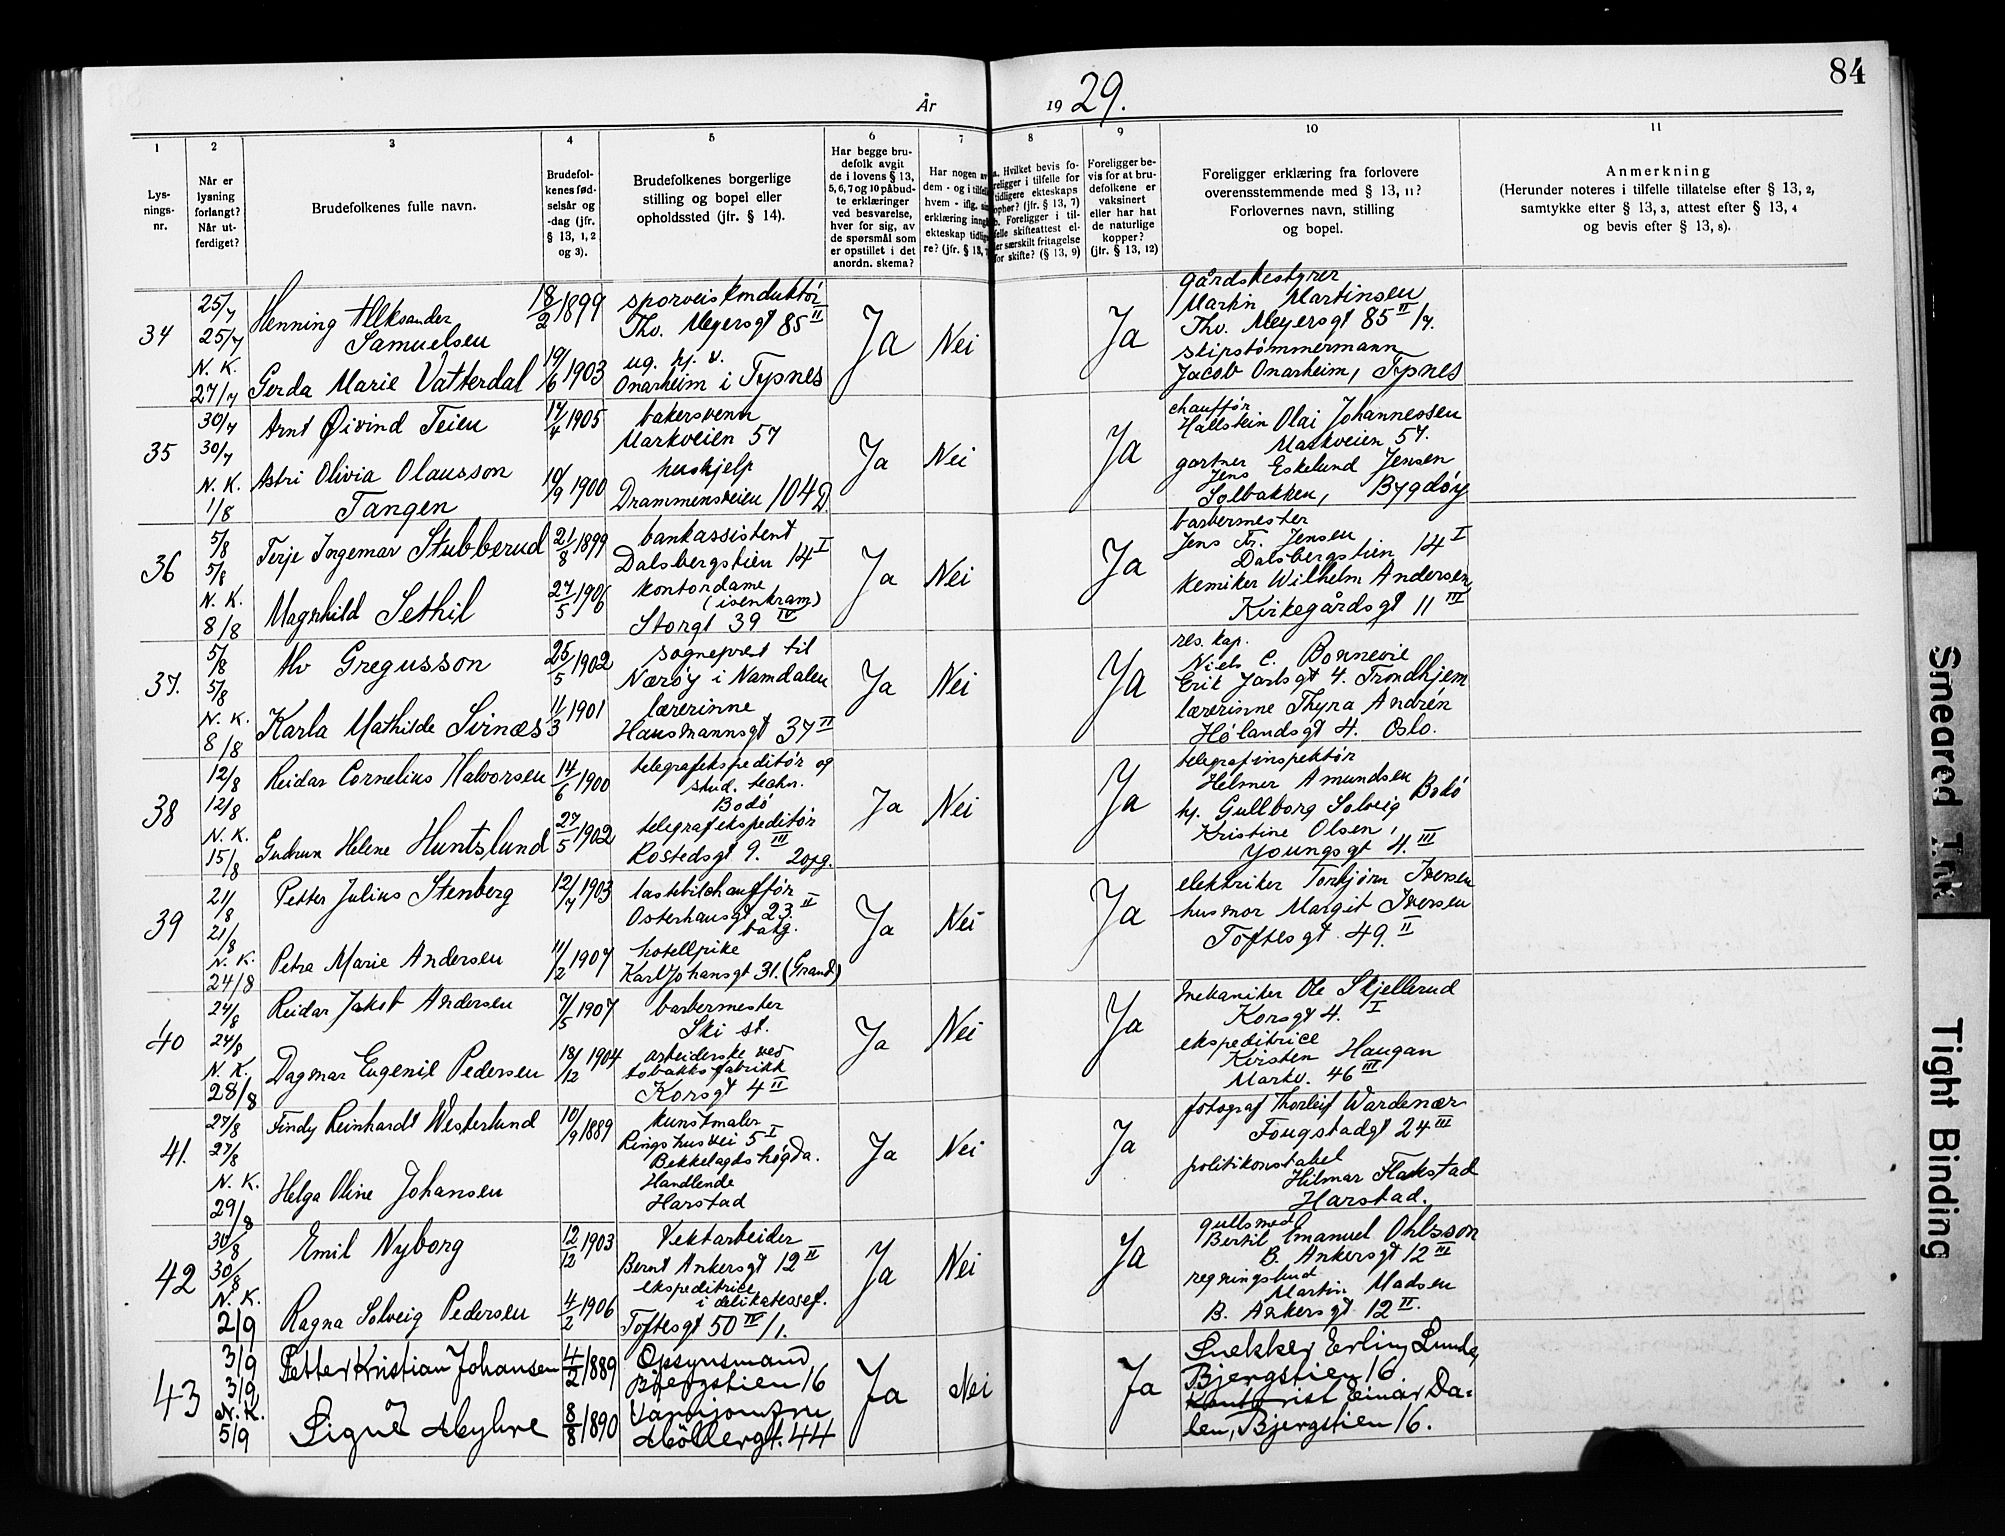 84
År 1929.
1 2 3 4 5 6 7 8 9 10 11
Lys-
nings-
nr.
Når er
lysning
forlangt?
Når ut-
ferdiget?
Brudefolkenes fulle navn.
Brudefol-
kenes fød-
selsår og
-dag (jfr.
§ 13, 1, 2
og 3).
Brudefolkenes borgerlige
stilling og bopel eller
opholdssted (jfr. § 14).
Har begge bru-
defolk avgit
de i lovens § 13,
5, 6, 7 og 10 påbud-
te erklæringer
ved besvarelse,
hver for sig, av
de spørsmål som
er opstillet i det
anordn. skema?
Har nogen av
dem - og i tilfelle
hvem - iflg. sin
erklæring inngått
ekteskap tidlige-
re? (jfr. § 13, 7)
a. Hvilket bevis fo-
religger i tilfelle for
tidligere ekteskaps
ophør? (jfr. § 13, 7)
b. Foreligger i til-
felle skifteattest el-
ler særskilt fritagelse
for skifte? (§ 13, 9)
Foreligger be-
vis for at bru-
defolkene er
vaksinert
eller har hat
de naturlige
kopper?
(jfr. § 13, 12)
Foreligger erklæring fra forlovere
overensstemmende med § 13, 11?
Forlovernes navn, stilling
og bopel.
Anmerkning
(Herunder noteres i tilfelle tillatelse efter § 13, 2,
samtykke efter § 13, 3, attest efter § 13, 4
og bevis efter § 13, 8).
34
25/7
25/7
N. K.
27/7
Henning Aleksander
Samuelsen
Gerda Marie Vatterdal
18/2 1899
19/6 1903
sporveiskonduktør
Thv. Meyersgt 85 II
ug. hj. v.
Onarheim i Tysnes
Ja
Nei
Ja
gårdsbestyrer
Martin Martinsen
Thv. Meyersgt 85 II/7.
skipstømmermann
Jacob Onarheim, Tysnes
35
30/7
30/7
N. K.
1/8
Arnt Øivind Teien
Astri Olivia Olausson
Tangen
14/4 1905
10/9 1900
bakersvenn
Markveien 57
hushjelp
Drammensveien 104 D.
Ja
Nei
Ja
chauffør
Hallstein Olai Johannessen
Markveien 57.
gartner
Jens Eskelund Jensen
Solbakken, Bygdøy
36
5/8
5/8
N. K.
8/8
Terje Ingemar Stubberud
Magnhild Sethil
21/8 1899
27/5 1906
bankassistent
Dalsbergstien 14 I
kontordame
(isenkram)
Storgt 39 IV
Ja
Nei
Ja
barbermester
Jens Fr. Jensen
Dalsbergstien 14 I
kemiker Wilhelm Andersen
Kirkegårdsgt 11 III
37.
5/8
5/8
N. K.
8/8
Alv Gregusson
Karla Mathilde Svinæs
25/5 1902
11/3 1901
sogneprest til
Nærøy i Namdalen
lærerinne
Hausmannsgt 37 II
Ja
Nei
Ja
res. kap.
Niels C. Bonnevie
Erik Jarlsgt 4. Trondhjem
lærerinne Thyra Andrén
Hølandsgt 4. Oslo.
38
12/8
12/8
N. K.
15/8
Reidar Cornelius Halvorsen
Gudrun Helene Huntslund
14/6 1900
27/5 1902
telegrafekspeditør og
stud. techn.
Bodø
telegrafekspeditør
Rostedsgt 9. III 2opg.
Ja
Nei
Ja
telegrafinspektør
Helmer Amundsen
Bodø
hj. Gullborg Solveig
Kristine Olsen,
Youngsgt 4. III
39
21/8
21/8
N. K.
24/8
Petter Julius Stenberg
Petra Marie Andersen
12/7 1903
11/2 1907
lastebilchauffør
Osterhausgt 23. II
bakg.
hotellpike
Karl Johansgt 31. (Grand)
Ja
Nei
Ja
elektriker Torbjørn Iversen
husmor Margit Iversen
Toftesgt 49. II
40
24/8
24/8
N. K.
28/8
Reidar Jakob Andersen
Dagmar Eugenie Pedersen
7/5 1907
18/12 1904
barbermester
Ski st.
arbeiderske ved
tobakksfabrikk
Korsgt 4 II
Ja
Nei
Ja
mekaniker Ole Skjellerud
Korsgt 4. I
ekspeditrice
Kirsten Haugan
Markv. 46 III
41.
27/8
27/8
N. K.
29/8
Findy Reinhardt Westerlund
Helga Oline Johansen
10/9 1889
kunstmaler
Ringshusvei 5 I
Bekkelagshøgda.
Handlende
Harstad
Ja
Nei
Ja
fotograf Thorleif Wardenær
Fougstadgt 24 III
politikonstabel
Hilmar Flakstad
Harstad.
42
30/8
30/8
N. K.
2/9
Emil Nyborg
Ragna Solveig Pedersen
12/12 1903
4/2 1906
Vektarbeider
Bernt Ankersgt 12 II
ekspeditrice
i delikatessef.
Toftesgt 50 IV/1.
Ja
Nei
Ja
gullsmed
Bertil Emanuel Ohlsson
B. Ankersgt 12 III
regningsbud
Martin Madsen
B. Ankersgt 12 II.
43
3/9
3/9
N. K.
5/9
Petter Kristian Johansen
Signe Myhre
4/2 1889
8/8 1890
Opsynsmand
Bjergstien 16
Møllergt. 44
Ja
Nei
Ja
Snekker Erling Lunde,
Bjergstien 16.
Kontorist Einar Da-
len, Bjergstien 16.
Smeared Ink
Tight Binding